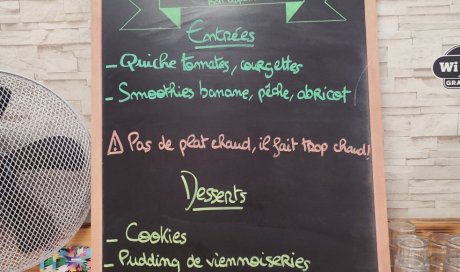 Bon appétit
Entrées
- Quiche tomates, courgettes
- Smoothies banane, pêche, abricot
⚠ Pas de plat chaud, il fait trop chaud!
Desserts
- Cookies
- Pudding de viennoiseries
Wi
GRA